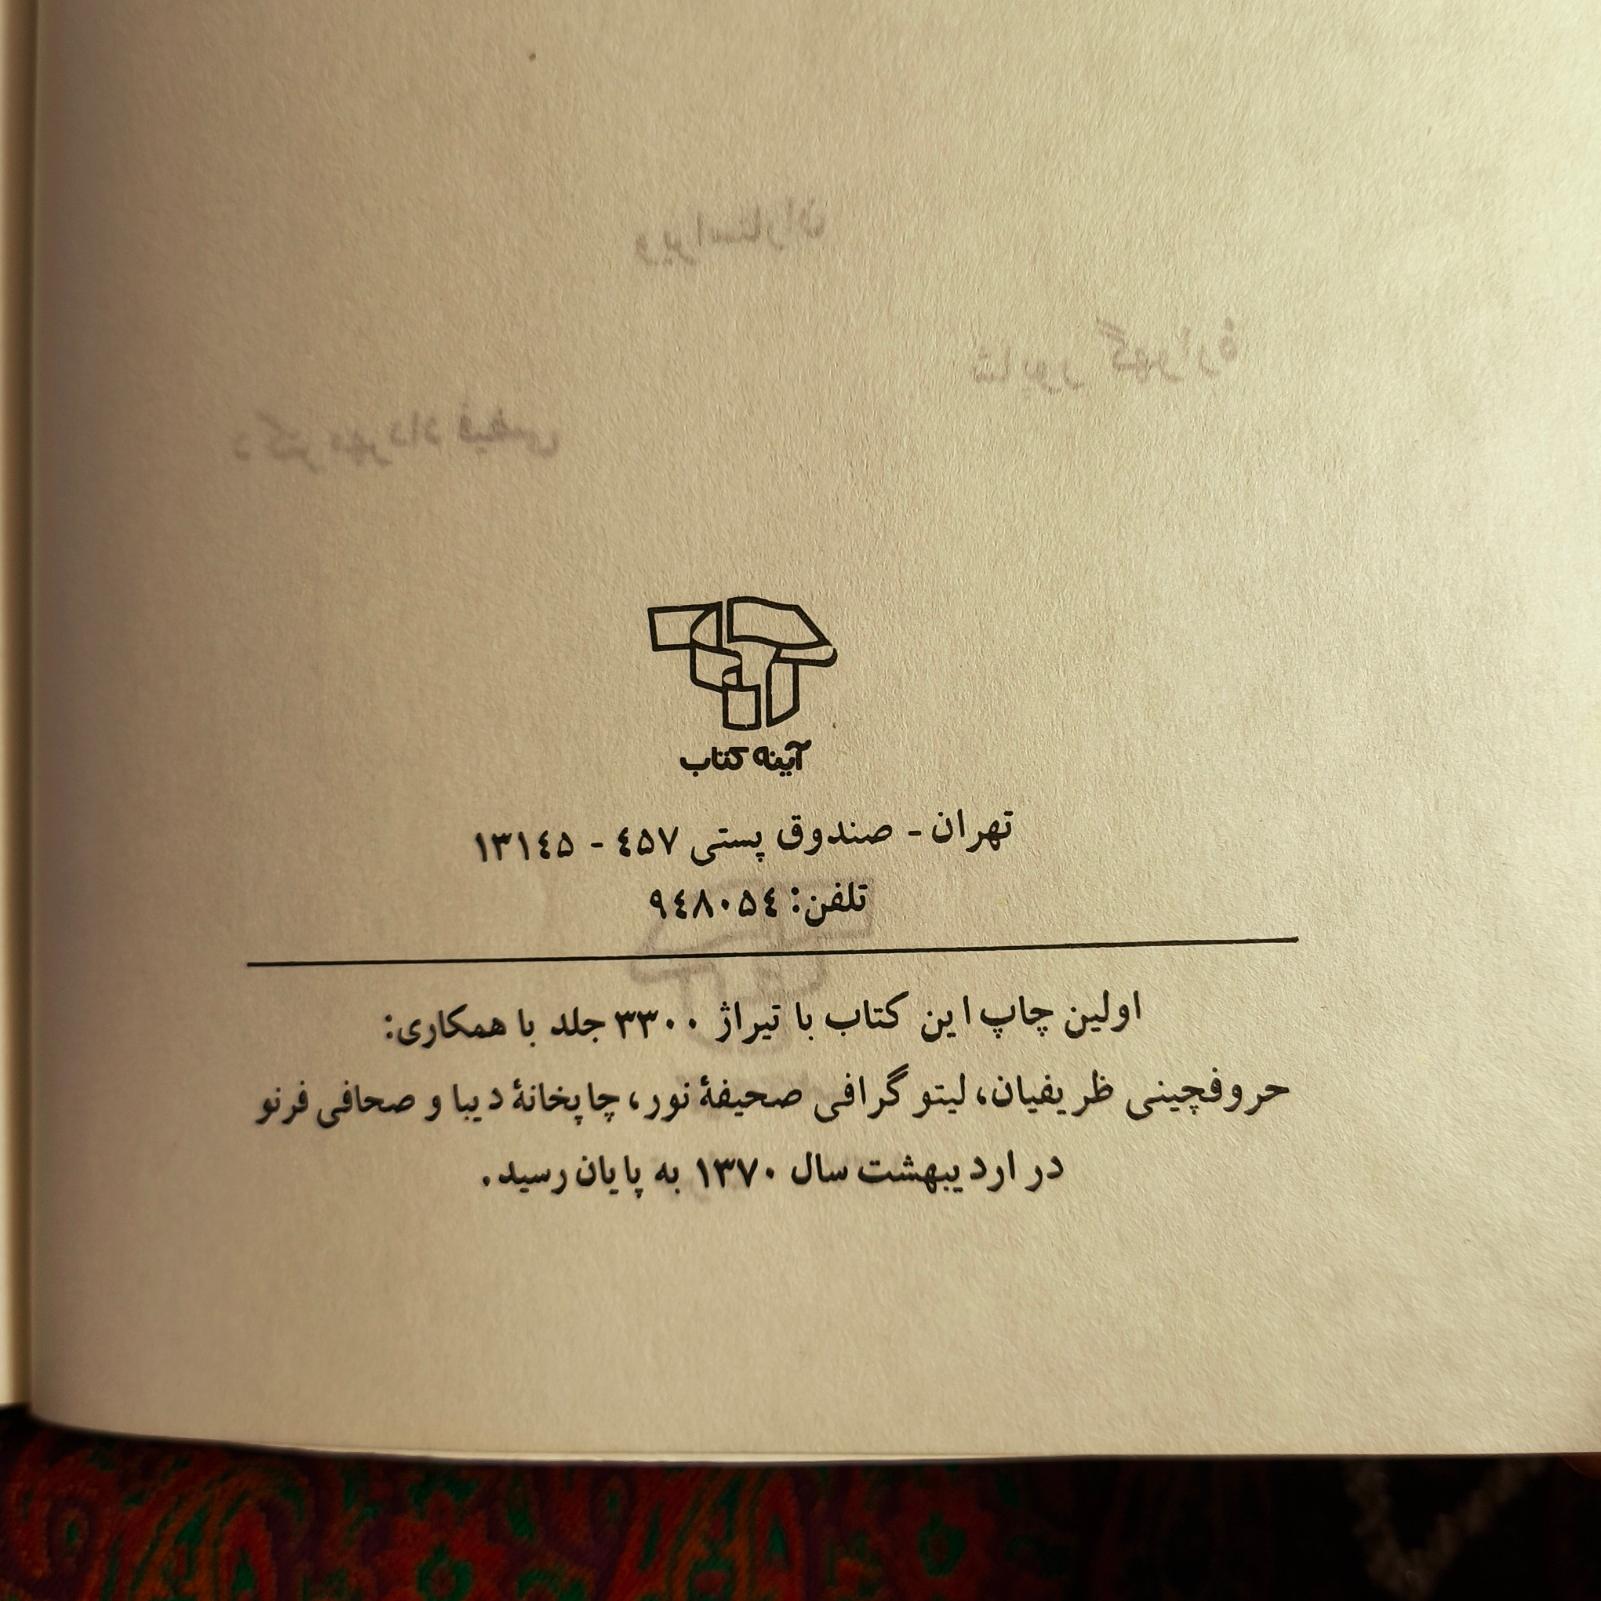 ویراستاران
شاپور گهواره
دکتر مهرداد فیضی
آینه کتاب
تهران - صندوق پستی ۴۵۷ - ۱۳۱۴۵
تلفن: ۹۴۸۰۵۴
اولین چاپ این کتاب با تیراژ ۳۳۰۰ جلد با همکاری:
حروفچینی ظریفیان، لیتوگرافی صحیفهٔ نور، چاپخانهٔ دیبا و صحافی فرنو
در اردیبهشت سال ۱۳۷۰ به پایان رسید.